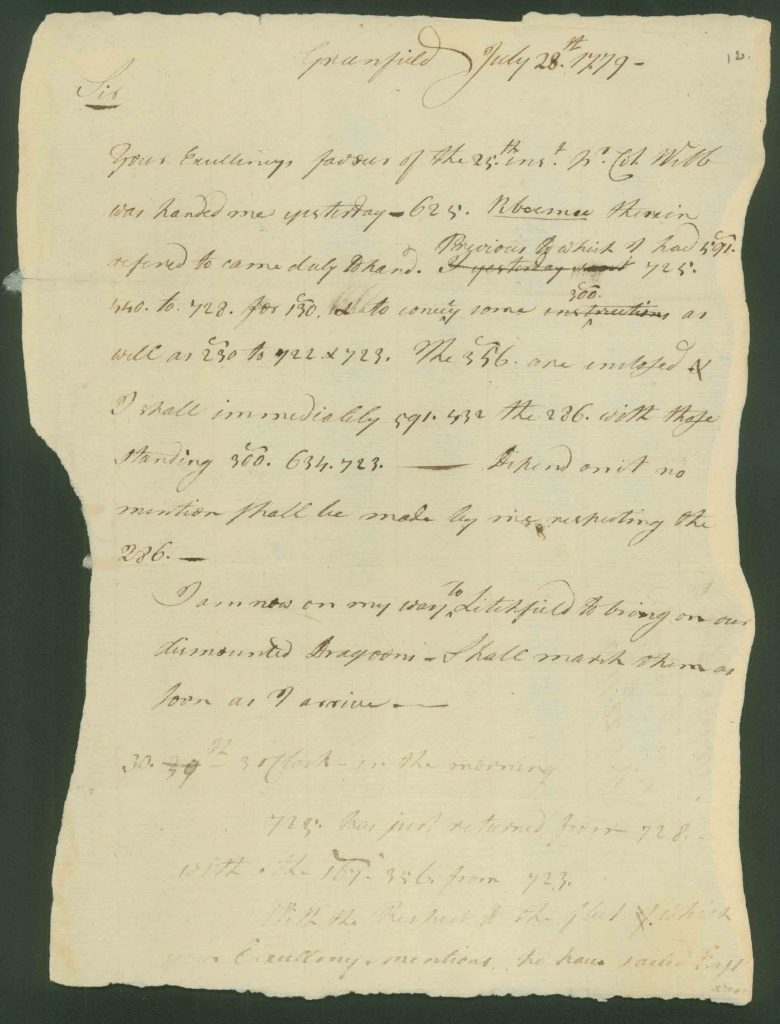 12.
Greenfield July 28.th 1779-
Sir
Your Excellencys favour of the 25.th ins.t pr. Col. Webb
was handed me yesterday - 625. therein
refered to came duly to hand. Previous to which I had 591.
I yesterday sent 725.
440. to 728. for 130, to convey some instructions 300. as
well as 230 to 722 & 723. The 356. are enclosed &
I shall immediately 591. 432 the 286. with those
standing 300. 634. 723. — Depend on it no
mention shall be made by me respecting the
286. —
I am now on my way to Litchfield to bring on our
dismounted Dragoons - Shall march them as
soon as I arrive —
30. 29th 3 oClock - in the morning
725. has just returned from 728.
with the 167. 356. from 723.
With the Respect to the fleet of which
your Excellency mentions to have sailed East